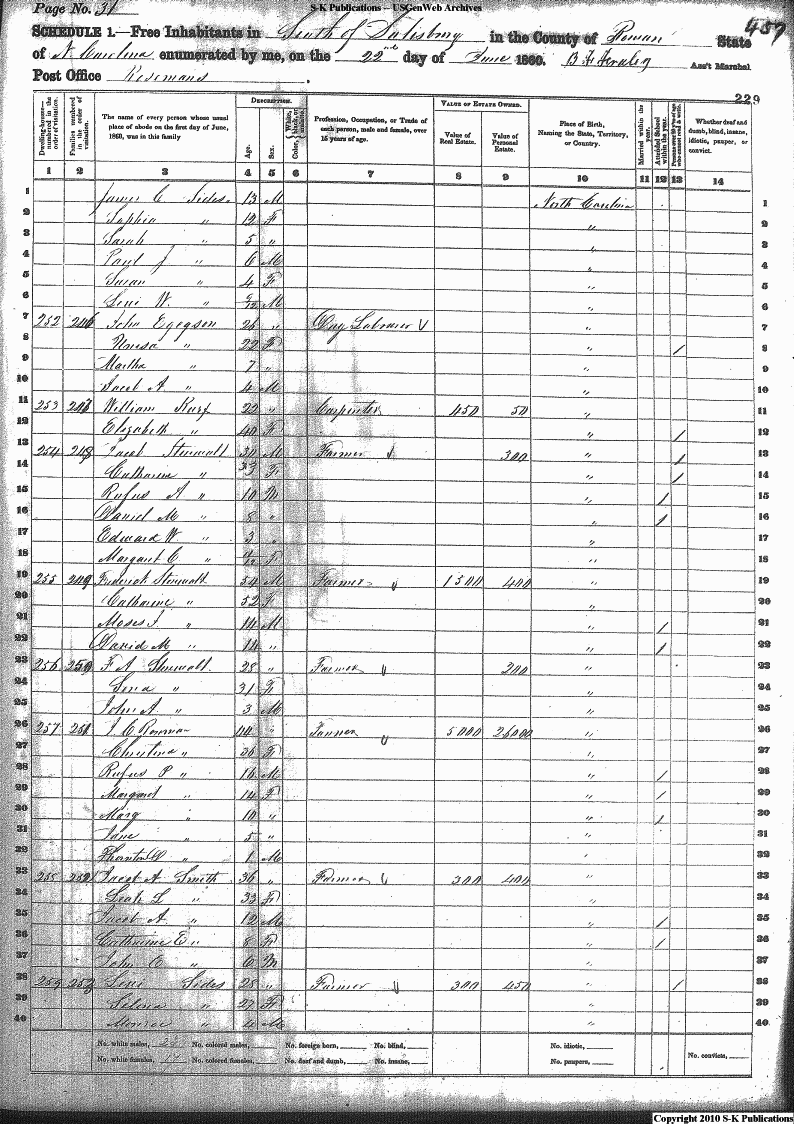 S-K Publications – USGenWeb Archives
Page No. 31
457
SCHEDULE 1.—Free Inhabitants in South of Salisbury in the County of Rowan State
of N. Carolina enumerated by me, on the 22nd day of June 1860. Ass't Marshal.
Post Office Rosemans.
229
Dwelling-houses—numbered in the order of visitation.
Families numbered in the order of visitation.
The name of every person whose usual place of abode on the first day of June, 1860, was in this family
DESCRIPTION.
Age.
Sex.
Color, White, black, or mulatto.
Profession, Occupation, or Trade of each person, male and female, over 15 years of age.
VALUE OF ESTATE OWNED.
Value of Real Estate.
Value of Personal Estate.
Place of Birth, Naming the State, Territory, or Country.
Married within the year.
Attended School within the year.
Persons over 20 years of age who cannot read & write.
Whether deaf and dumb, blind, insane, idiotic, pauper, or convict.
1 2 3 4 5 6 7 8 9 10 11 12 13 14
1 James C Sides 13 M North Carolina 1
2 Sophia " 12 F " 2
3 Sarah " 5 " " 3
4 Paul J " 6 M " 4
5 Susan " 4 F " 5
6 Levi W. " M " 6
7 252 246 John Egegson 26 " Day Laborer V " 7
8 " 22 F " / 8
9 Martha " 7 " " 9
10 Jacob A " 4 M " 10
11 253 247 William 22 " Carpenter 450 50 " 11
12 Elizabeth " 40 F " / 12
13 254 248 Jacob Stirewalt 30 M Farmer V 300 " / 13
14 Catharine " 33 F " / 14
15 Rufus A " 10 M " / 15
16 Daniel M " 8 " " / 16
17 Edward W " 3 " " 17
18 Margaret C " F " 18
19 255 249 Frederick Stirewalt 54 M Farmer V 1500 400 " 19
20 Catharine " 52 F " 20
21 Moses I. " 14 M " / 21
22 David M " 14 " " / 22
23 256 250 F A Stirewalt 28 " Farmer V 200 " 23
24 Lena " 31 F " 24
25 John A. " 3 M " 25
26 257 251 J. C Roseman 40 " Tanner V 5000 26000 " 26
27 Christina " 36 F " 27
28 Rufus P " 16 M " / 28
29 Margaret " 14 F " / 29
30 Mary " 10 " " / 30
31 Jane " 5 " " 31
32 Thornton " 1 M " 32
33 258 252 Jacob A. Smith 36 " Farmer V 300 400 " 33
34 Leah L " 33 F " 34
35 Jacob A " 12 M " / 35
36 Catharine E " 8 F " / 36
37 John C " 6 M " 37
38 259 253 Levi Sides 28 " Farmer V 300 450 " / 38
39 Selena " 27 F " 39
40 Monroe " 4 M " 40
No. white males, 23 No. colored males, No. foreign born, No. blind, No. idiotic,
No. white females, 17 No. colored females, No. deaf and dumb, No. insane, No. paupers, No. convicts,
Copyright 2010 S-K Publications